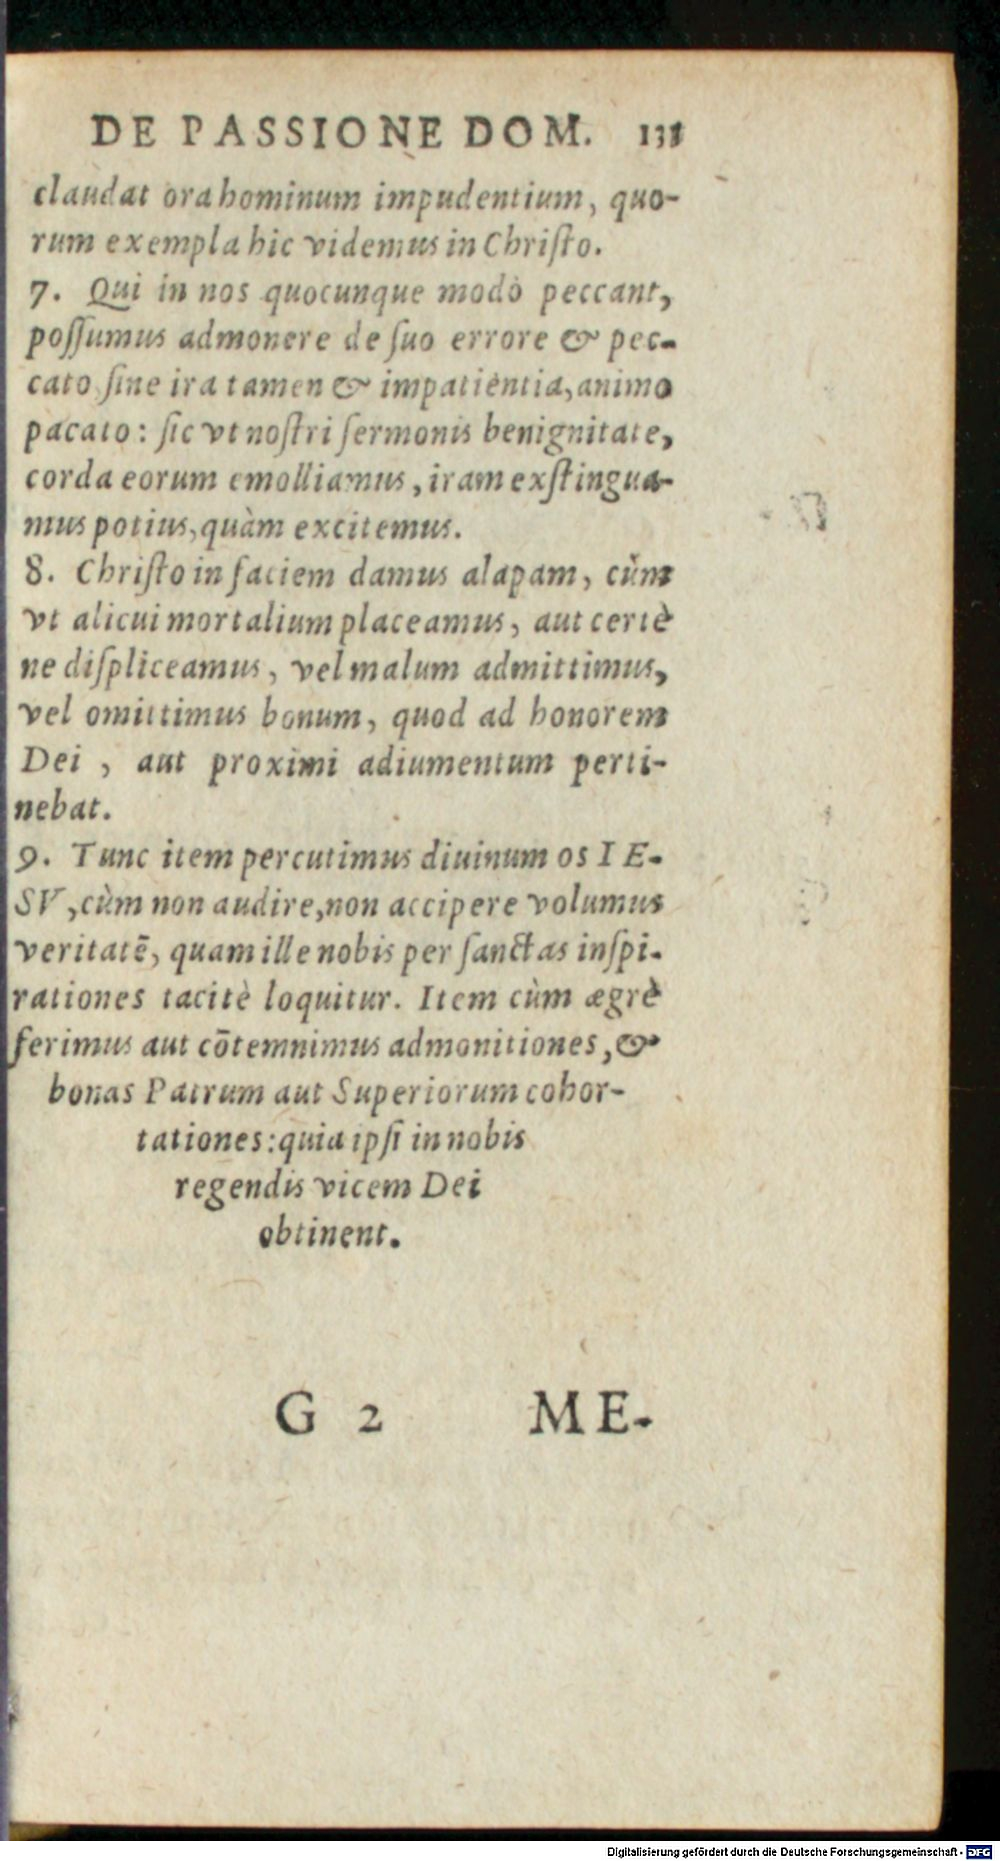 DE PASSIONE DOM. 131
claudat ora hominum impudentium, quo-
rum exempla hic videmus in Christo.
7. Qui in nos quocunque modò peccant,
possumus admonere de suo errore & pec-
cato, sine ira tamen & impatientia, animo
pacato: sic vt nostri sermonis benignitate,
corda eorum emolliamus, iram exstingua-
mus potius, quàm excitemus.
8. Christo in faciem damus alapam, cùm
vt alicui mortalium placeamus, aut certè
ne displiceamus, vel malum admittimus,
vel omittimus bonum, quod ad honorem
Dei, aut proximi adiumentum perti-
nebat.
9. Tunc item percutimus diuinum os IE-
SV, cùm non audire, non accipere volumus
veritatē, quam ille nobis per sanctas inspi-
rationes tacitè loquitur. Item cùm ægrè
ferimus aut cōtemnimus admonitiones, &
bonas Patrum aut Superiorum cohor-
tationes: quia ipsi in nobis
regendis vicem Dei
obtinent.
G 2 ME-
Digitalisierung gefördert durch die Deutsche Forschungsgemeinschaft - DFG